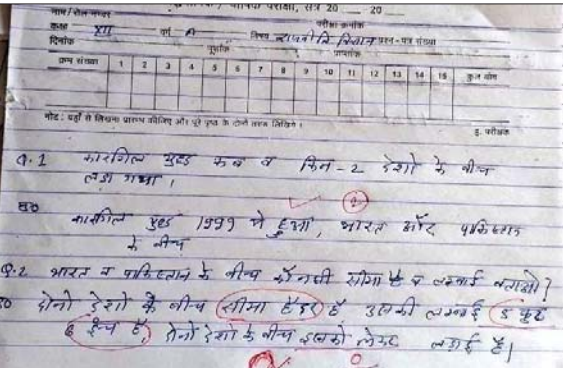 नाम/रोल नम्बर परीक्षा, सत्र 20 ___ 20 ___
परीक्षा क्रमांक
कक्षा XII वर्ग A विषय राजनीति विज्ञान प्रश्न-पत्र संख्या
दिनांक पूर्णांक प्राप्तांक
प्रश्न संख्या 1 2 3 4 5 6 7 8 9 10 11 12 13 14 15 कुल योग
नोट : यहाँ से लिखना प्रारम्भ कीजिए और पूरे पृष्ठ के दोनों तरफ लिखिये।
ह. परीक्षक
Q.1 कारगिल युद्ध कब व किन-2 देशो के बीच
लडा गया।
2
उ0 कारगिल युद्ध 1999 मे हुआ, भारत और पाकिस्तान
के बीच
Q.2 भारत व पाकिस्तान के बीच कौनसी सीमा है व लम्बाई बताओ?
उ0 दोनो देशो के बीच सीमा हैदर है उसकी लम्बाई 5 फुट
6 ईंच है, दोनो देशो के बीच इसको लेकर लडाई है।
0